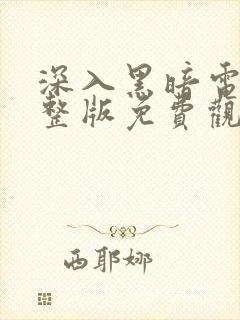 深入黑暗電
整版免費觀
西耶娜